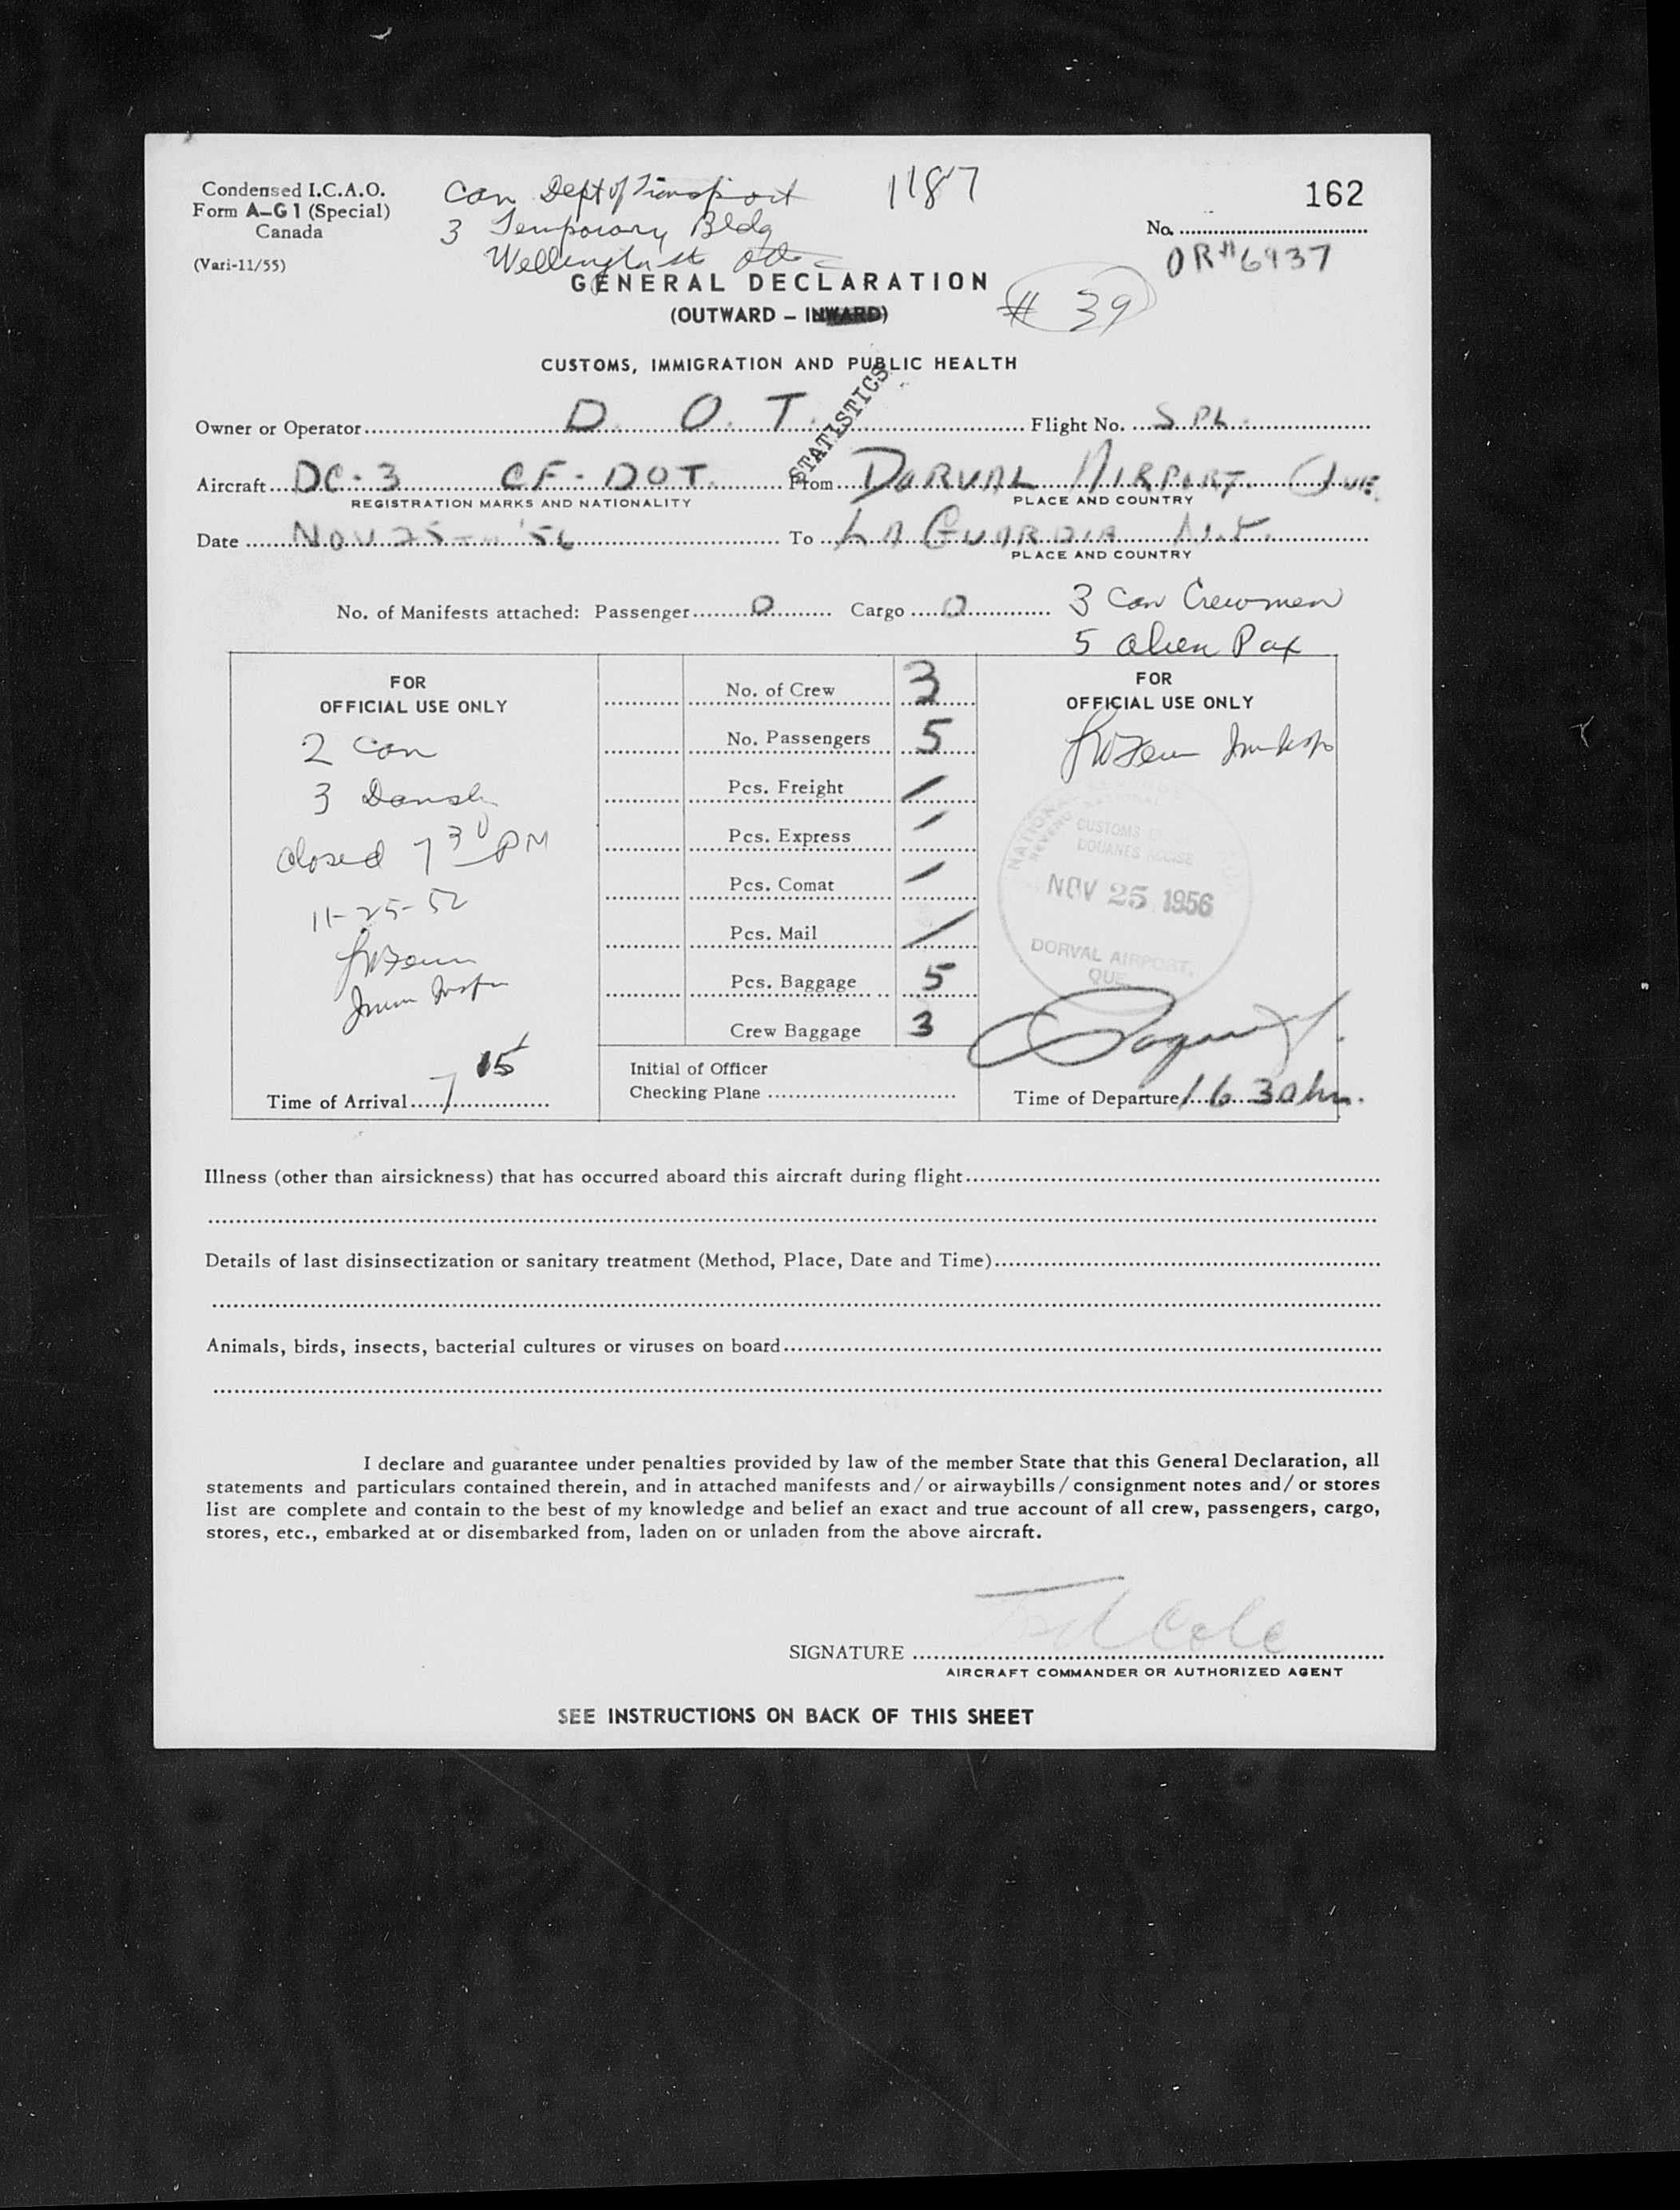 Condensed I.C.A.O.
Form A-G1 (Special)
Canada
(Vari-11/55)
Can Dept of Transport
3 Temporary Bldg
1187
162
No.
OR#6937
GENERAL DECLARATION
(OUTWARD - INWARD)
# 39
CUSTOMS, IMMIGRATION AND PUBLIC HEALTH
STATISTICS
Owner or Operator D. O. T. Flight No. SPL.
Aircraft DC-3 CF-DOT. From DORVAL AIRPORT. QUE.
REGISTRATION MARKS AND NATIONALITY PLACE AND COUNTRY
Date NOV 25TH '56 To LA GUARDIA N.Y.
PLACE AND COUNTRY
No. of Manifests attached: Passenger 0 Cargo 0
3 Can Crewmen
5 alien Pax
FOR
OFFICIAL USE ONLY
2 Can
3 Danish
Closed 7 30 PM
11-25-52
Imm Inspr
Time of Arrival 7 15
No. of Crew 3
No. Passengers 5
Pcs. Freight /
Pcs. Express /
Pcs. Comat /
Pcs. Mail /
Pcs. Baggage 5
Crew Baggage 3
Initial of Officer
Checking Plane
FOR
OFFICIAL USE ONLY
CUSTOMS
DOUANES
NOV 25 1956
DORVAL AIRPORT,
QUE
Time of Departure 16.30 hrs.
Illness (other than airsickness) that has occurred aboard this aircraft during flight
Details of last disinsectization or sanitary treatment (Method, Place, Date and Time)
Animals, birds, insects, bacterial cultures or viruses on board
I declare and guarantee under penalties provided by law of the member State that this General Declaration, all
statements and particulars contained therein, and in attached manifests and/or airwaybills/consignment notes and/or stores
list are complete and contain to the best of my knowledge and belief an exact and true account of all crew, passengers, cargo,
stores, etc., embarked at or disembarked from, laden on or unladen from the above aircraft.
SIGNATURE Cole
AIRCRAFT COMMANDER OR AUTHORIZED AGENT
SEE INSTRUCTIONS ON BACK OF THIS SHEET